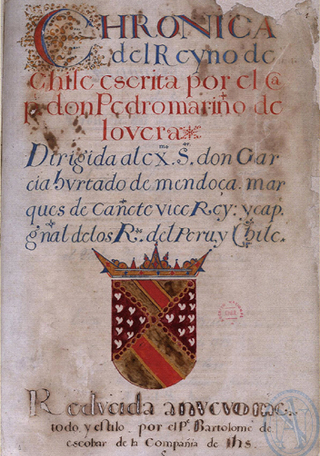 CHRONICA
del Reyno de
Chile escrita por el @
p. don Pedro mariño de
lovera
Dirigida al exᵐᵒ. Sᵒʳ. don Gar
cia hurtado de mendoça. mar
ques de Cañete vice Rey: y cap.
gñal de los Rˢ. del Peru, y Chile.
Reducida a nuevo me..
todo, y estilo. por el Pᵉ. Bartolome de
escobar de la Compañia de ihs.